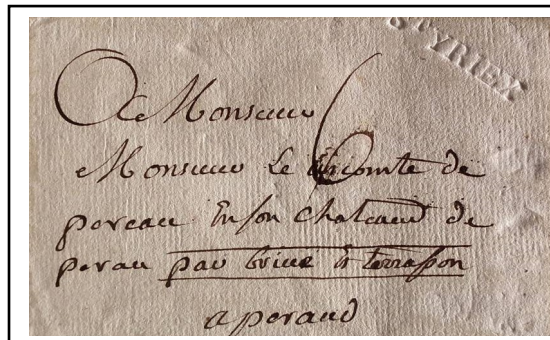 STYRIEX
A Monsieur
Monsieur Le vicomte de
pereau En son Chateaud de
perau par brive à terrasson
a peraud